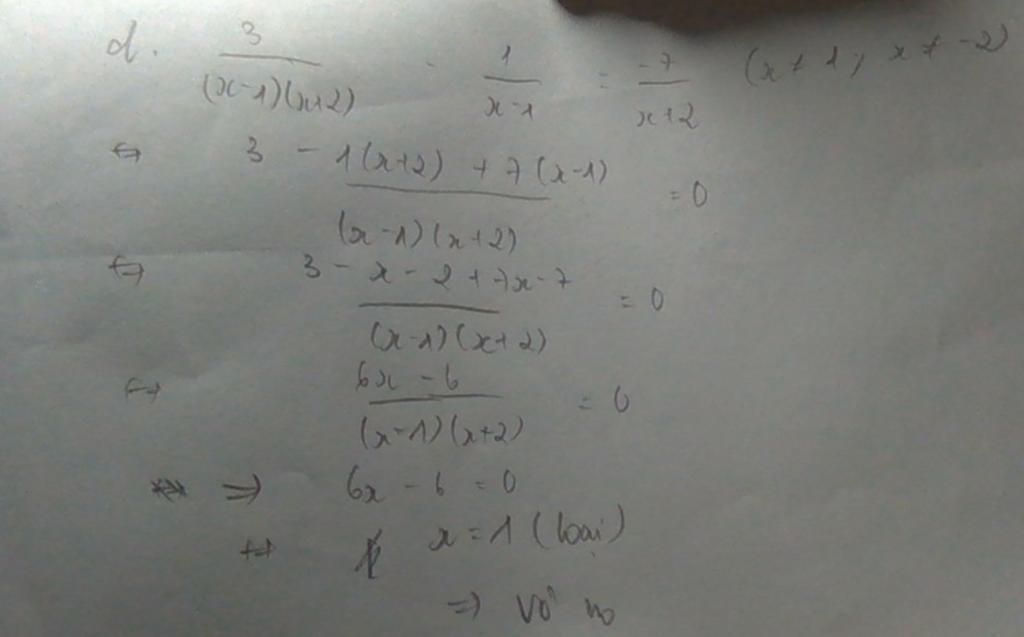 d. 3/((x-1)(x+2)) - 1/(x-1) = -7/(x+2) (x ≠ 1; x ≠ -2)
⇔ (3 - 1(x+2) + 7(x-1))/((x-1)(x+2)) = 0
⇔ (3 - x - 2 + 7x - 7)/((x-1)(x+2)) = 0
⇔ (6x - 6)/((x-1)(x+2)) = 0
⇒ 6x - 6 = 0
⇔ x = 1 (loại)
⇒ vô no